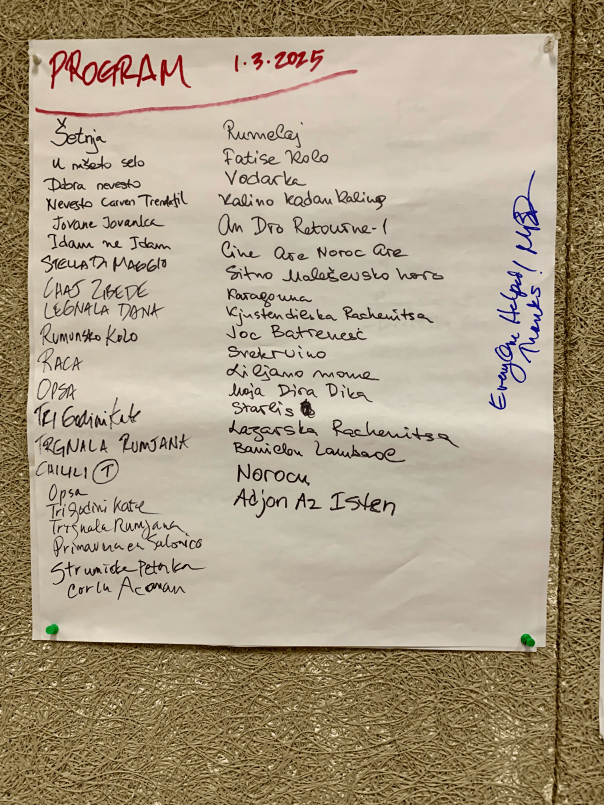 PROGRAM 1.3.2025
Šetnja
U našeto selo
Dobra nevesto
Nevesto Carven Trendafil
Jovane Jovanke
Idam ne Idam
STELLA DI MAGGIO
CHAJ ZIBEDE
LEGNALA DANA
Rumunsko Kolo
RACA
OPSA
TRI Godini Kate
TRGNALA RUMJANA
CHILILI T
Opsa
Tri Godini Kate
Trgnala Rumjana
Primavera en Salonico
Strumicka Petorka
Corlu
Rumelaj
Fatise Kolo
Vodarka
Kalino Kadan Kalino
An Dro Retourne-1
Cine Are Noroc Are
Sitno Maleševsko horo
Karagouna
Kjustendilska Rachenitsa
Joc Batrenesc
Svekrvino
Liljano mome
Moja Dira Dika
Starlis
Lazarska Rachenitsa
Banielou Lambaol
Norocu
Adjon Az Isten
EveryOne Helped!
Thanks! MBD